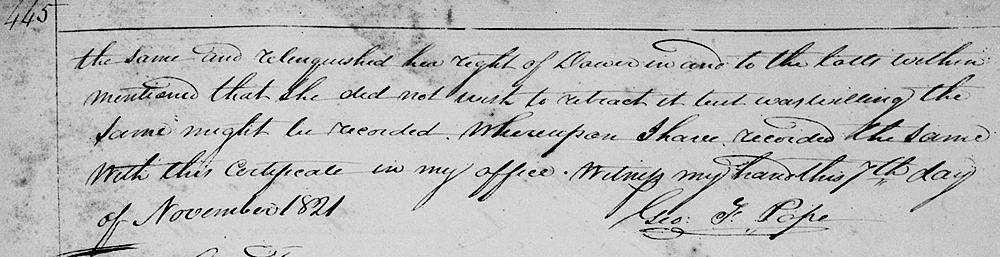 445
the same and relenguished her right of Dower in and to the lotts within
mentioned that she did not wish to retract it but was willing the
same might be recorded. Whereupon I have recorded the same
with this certificate in my office. Witness my hand this 7th day
of November 1821 Geo: F. Pope